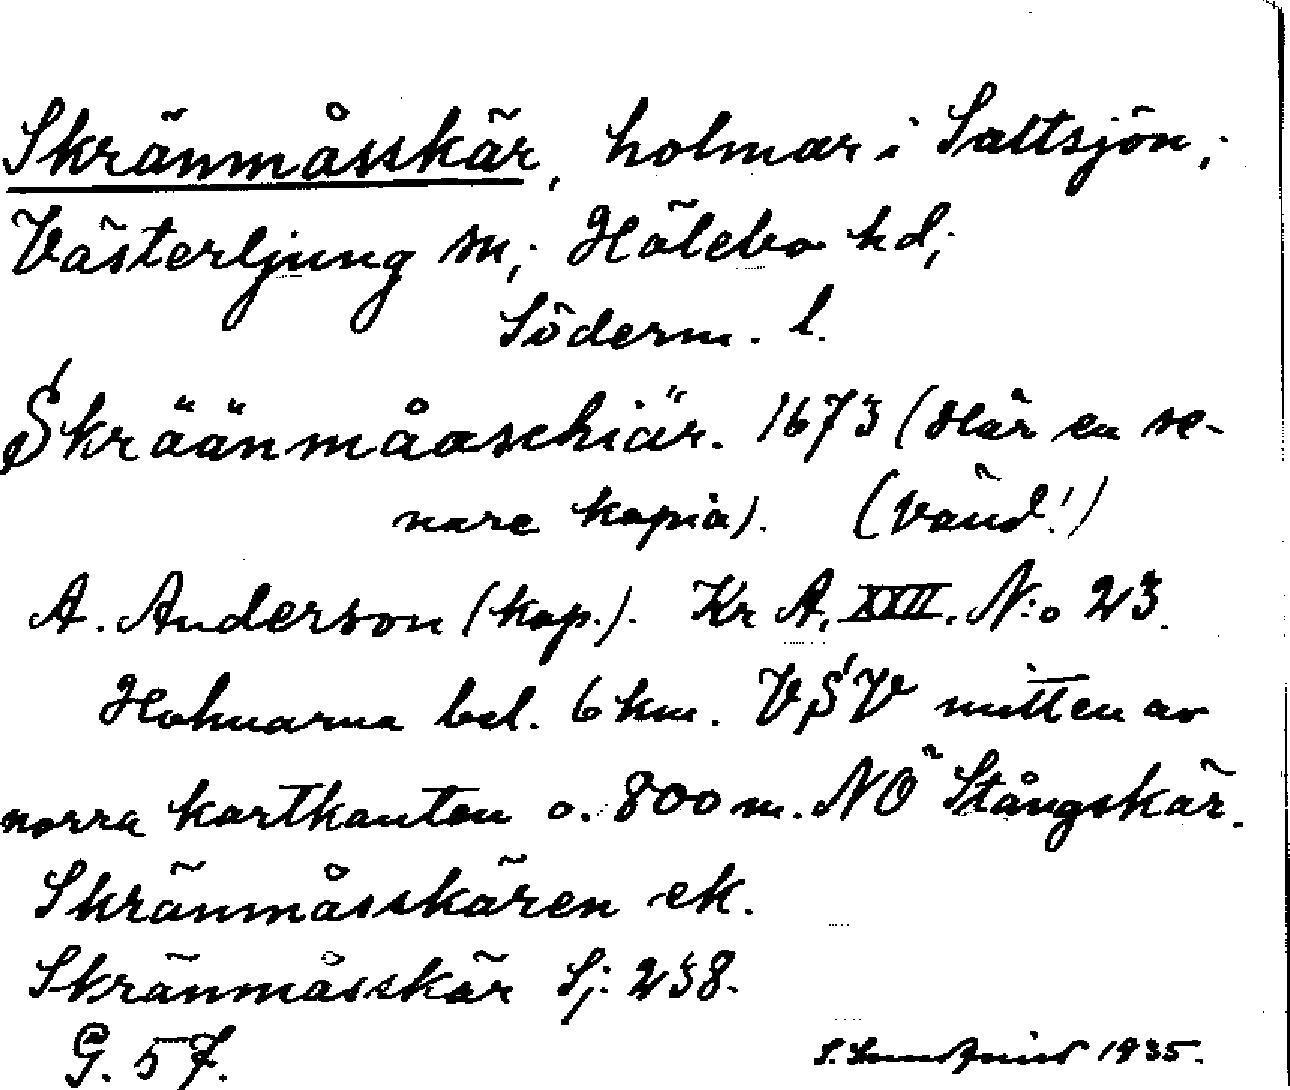 Skränmåsskär, holmar i Saltsjön,;
Västerljung sn,; Hölebo hd,;
Söderm. l.
Skräänmåaschiär. 1673 (Här en se-
nare kopia). (Vänd!)
A. Anderson (kop.). Kr A. XXII. N:o 23.
Holmarna bel. 6 km. VSV mitten av
norra kartkanten o. 800 m. NÖ Stångskär.
Skränmåsskären ek.
Skränmåsskär Sj: 238.
G. 57.
S. Lundquist 1935.